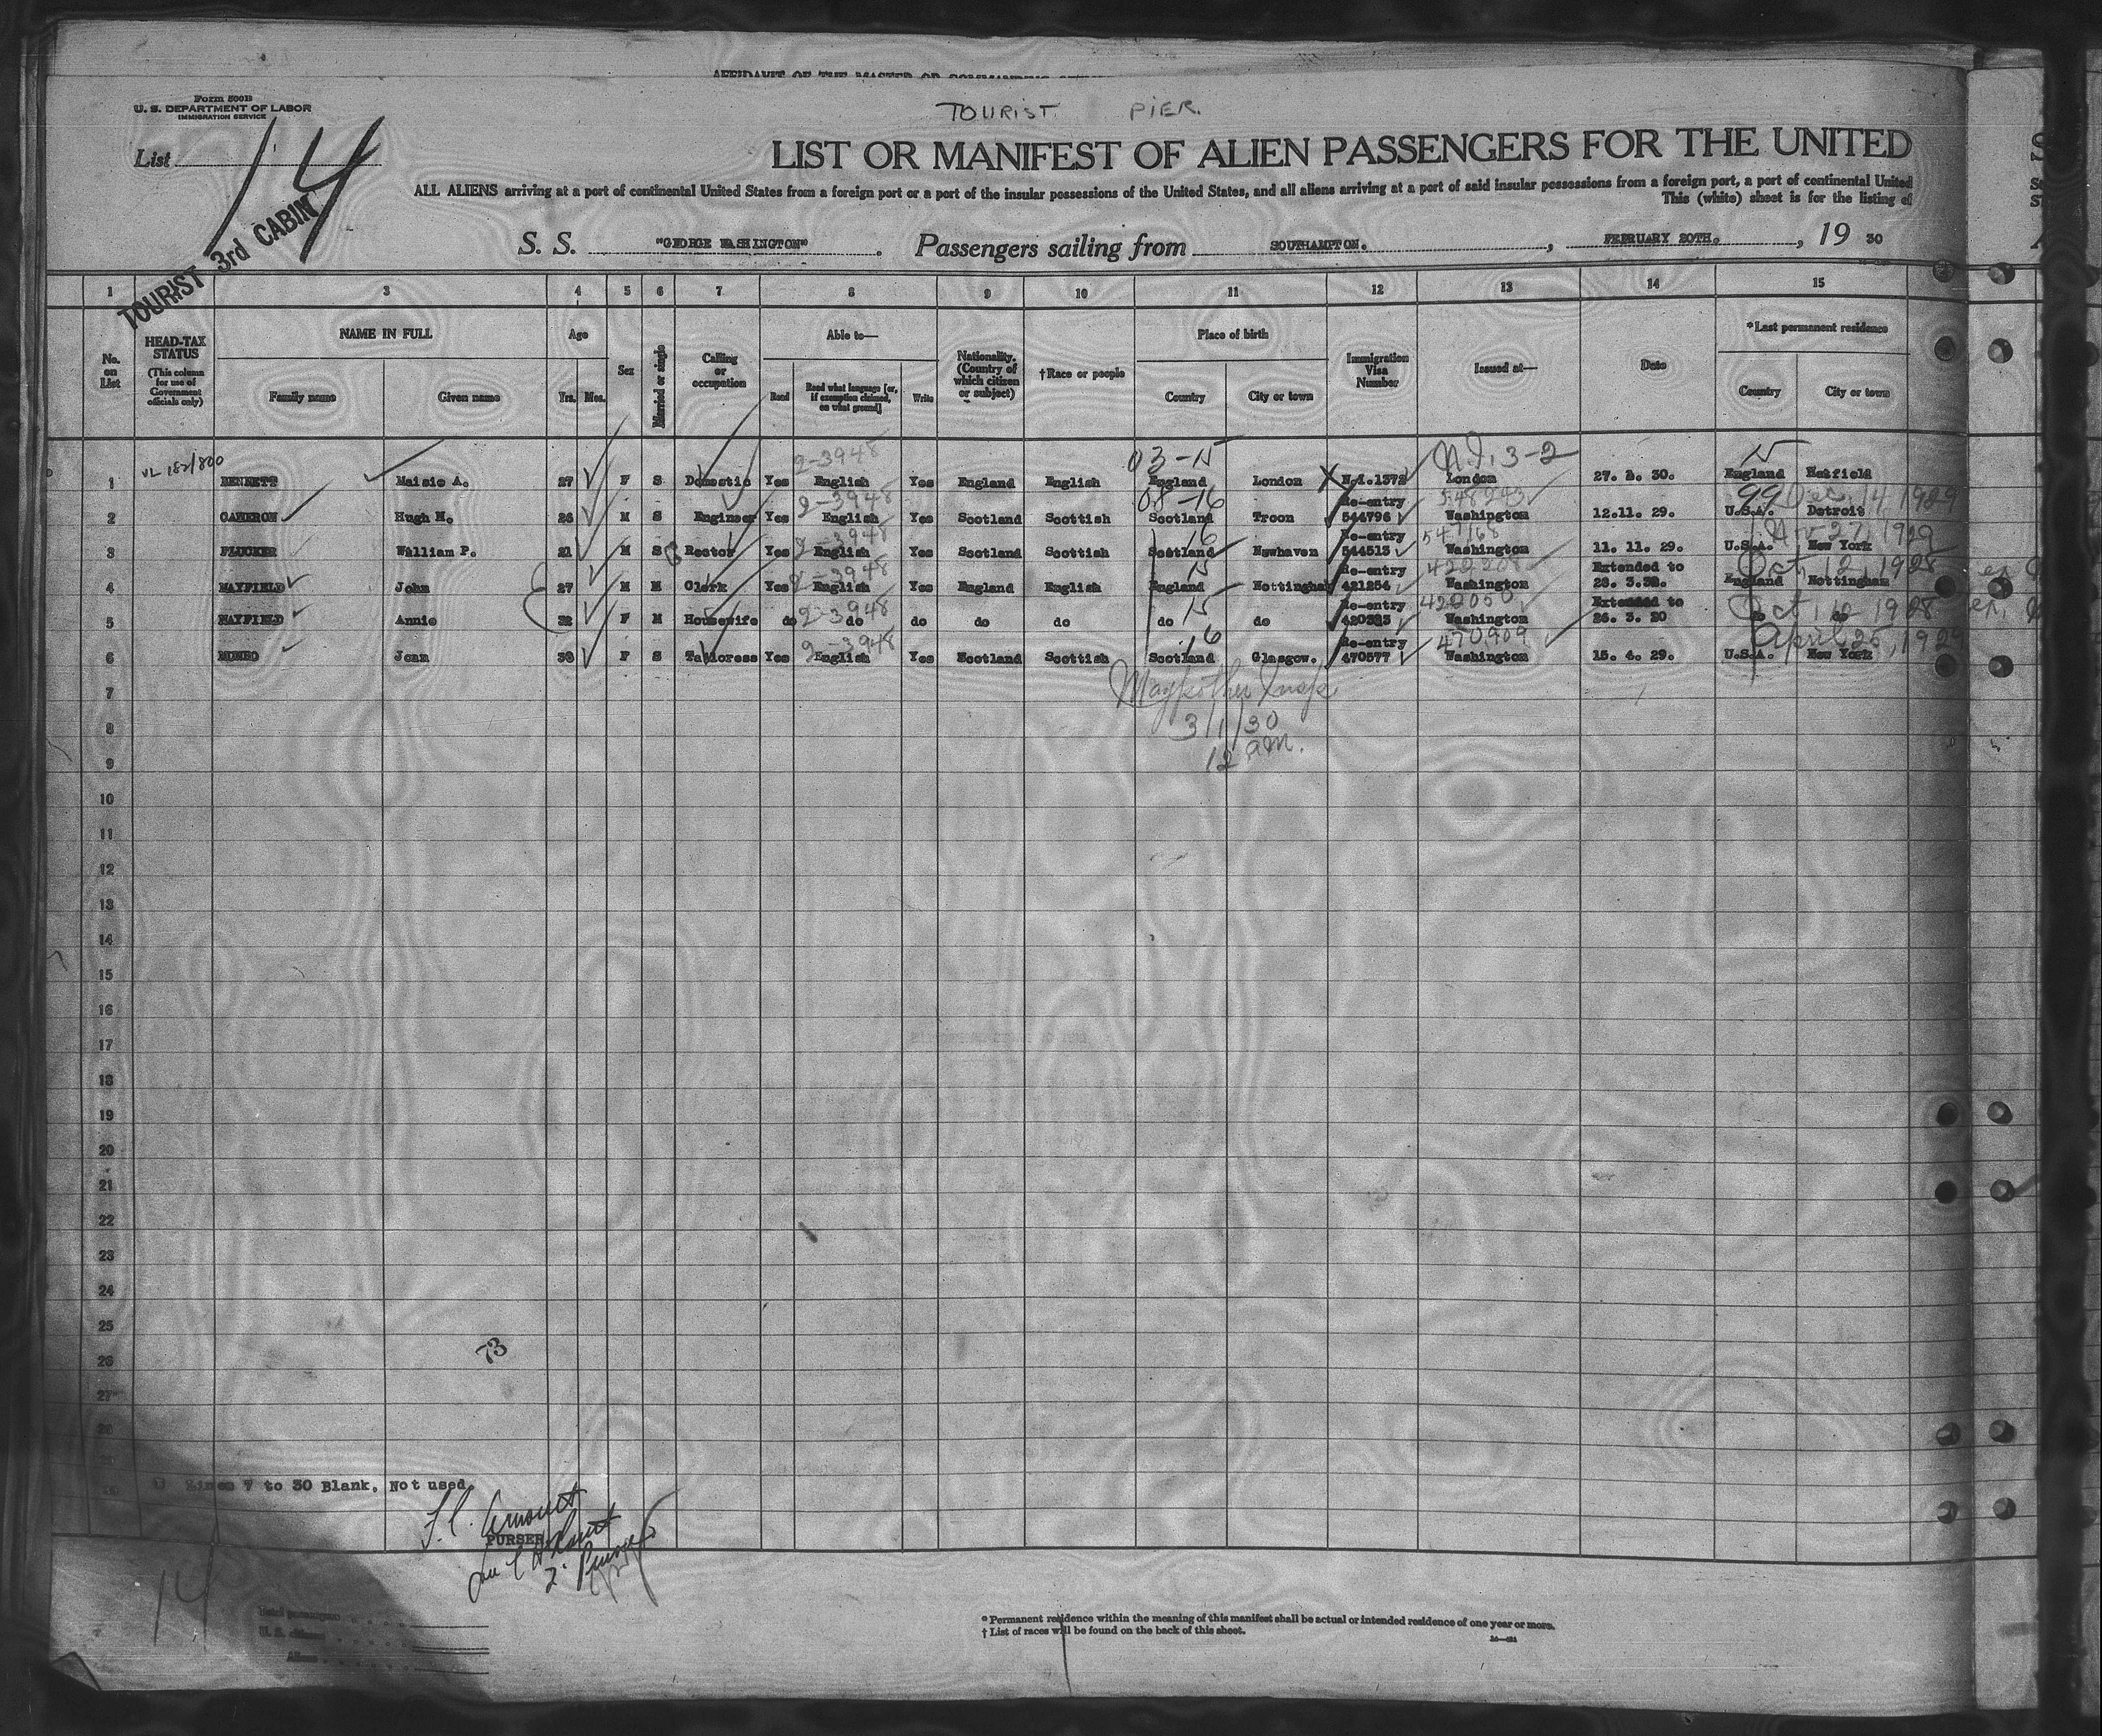 AFFIDAVIT OF THE MASTER OR COMMANDING
Form 500B
U. S. DEPARTMENT OF LABOR
IMMIGRATION SERVICE
TOURIST PIER.
List 14
TOURIST 3rd CABIN
LIST OR MANIFEST OF ALIEN PASSENGERS FOR THE UNITED
ALL ALIENS arriving at a port of continental United States from a foreign port or a port of the insular possessions of the United States, and all aliens arriving at a port of said insular possessions from a foreign port, a port of continental United
This (white) sheet is for the listing of
S. S. "GEORGE WASHINGTON". Passengers sailing from SOUTHAMPTON. , FEBRUARY 20TH. , 19 30
1 3 4 5 6 7 8 9 10 11 12 13 14 15
No. on List
HEAD-TAX STATUS (This column for use of Government officials only)
NAME IN FULL
Family name Given name
Age
Yrs. Mos.
Sex
Married or single
Calling or occupation
Able to—
Read Read what language [or, if exemption claimed, on what ground] Write
Nationality. (Country of which citizen or subject)
†Race or people
Place of birth
Country City or town
Immigration Visa Number
Issued at—
Date
*Last permanent residence
Country City or town
2-3948 03-15 N.I. 3-2 15
1 BENNETT Maisie A. 27 F S Domestic Yes English Yes England English England London N.I.1372 London 27. 1. 30. England Hatfield
2-3948 08-16 Re-entry 548243 99 Dec. 14, 1929
2 CAMERON Hugh M. 26 M S Engineer Yes English Yes Scotland Scottish Scotland Troon 544796 Washington 12.11. 29. U.S.A. Detroit
2-3948 16 Re-entry 547168 Nov 27, 1929
3 FLUCKER William P. 21 M S Rector Yes English Yes Scotland Scottish Scotland Newhaven 544513 Washington 11. 11. 29. U.S.A. New York
2-3948 15 Re-entry 420208 Extended to Oct. 12, 1928
4 MAYFIELD John 27 M M Clerk Yes English Yes England English England Nottingham 421254 Washington 26. 3. 30. England Nottingham
2-3948 15 Re-entry 420050 Extended to Oct. 10 1928
5 MAYFIELD Annie 32 F M Housewife do do do do do do do 420323 Washington 26. 3. 30 do do
2-3948 16 Re-entry 470909 April 25, 1929
6 MUNRO Jean 30 F S Tailoress Yes English Yes Scotland Scottish Scotland Glasgow. 470577 Washington 15. 4. 29. U.S.A. New York
7
3/1/30
8
12 am.
9
10
11
12
13
14
15
16
17
18
19
20
21
22
23
24
25
73
26
27
28
29
Lines 7 to 30 Blank, Not used
PURSER
14
Total passengers
U. S. citizens
Aliens
* Permanent residence within the meaning of this manifest shall be actual or intended residence of one year or more.
† List of races will be found on the back of this sheet.